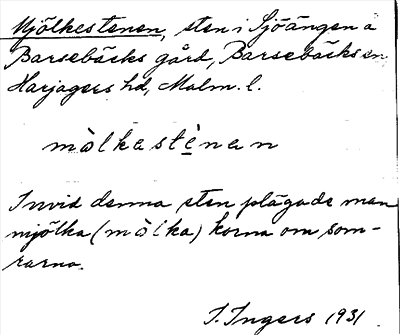 Mjölkestenen, sten i Sjöängen å
Barsebäcks gård, Barsebäcks sn
Harjagers hd, Malm. l.
mòlkestènan
Invid denna sten plägade man
mjölka (mòlka) korna om som-
rarna.
I. Ingers 1931